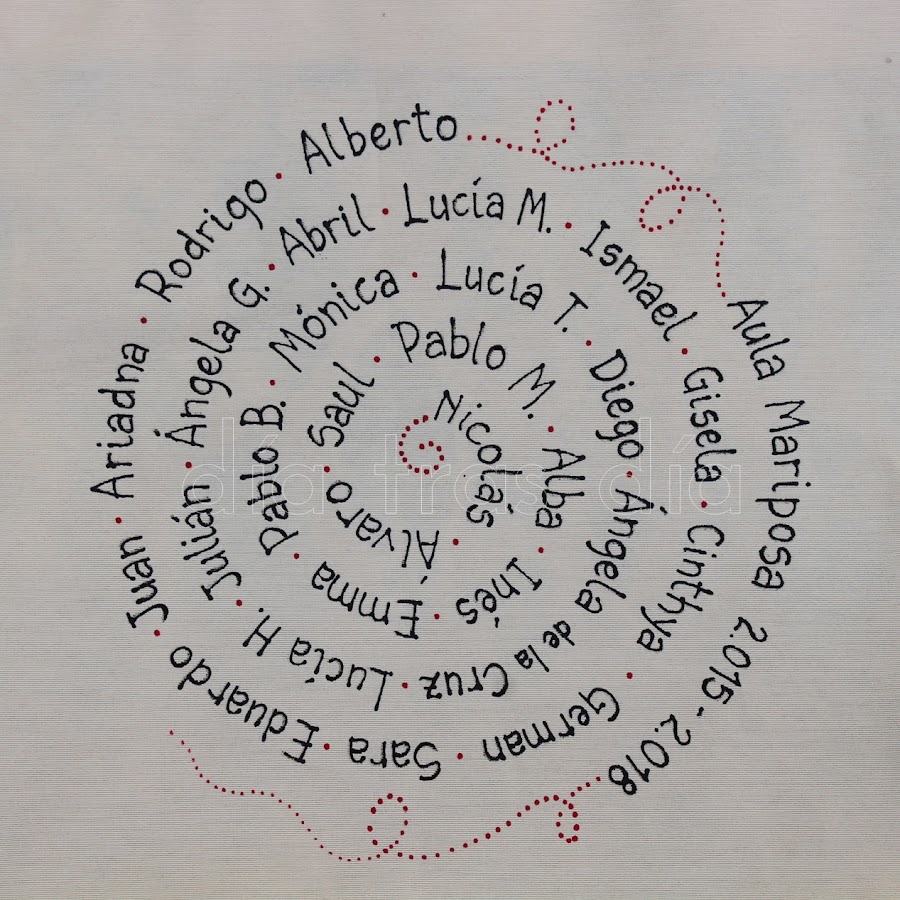 Nicolás · Álvaro · Saul · Pablo M. · Alba · Inés · Emma · Pablo B. · Mónica · Lucía T. · Diego · Ángela de la Cruz · Lucía H. · Julián · Ángela G. · Abril · Lucía M. · Ismael · Gisela · Cinthya · German · Sara · Eduardo · Juan · Ariadna · Rodrigo · Alberto
Aula Mariposa 2.015-2.018
día tras día